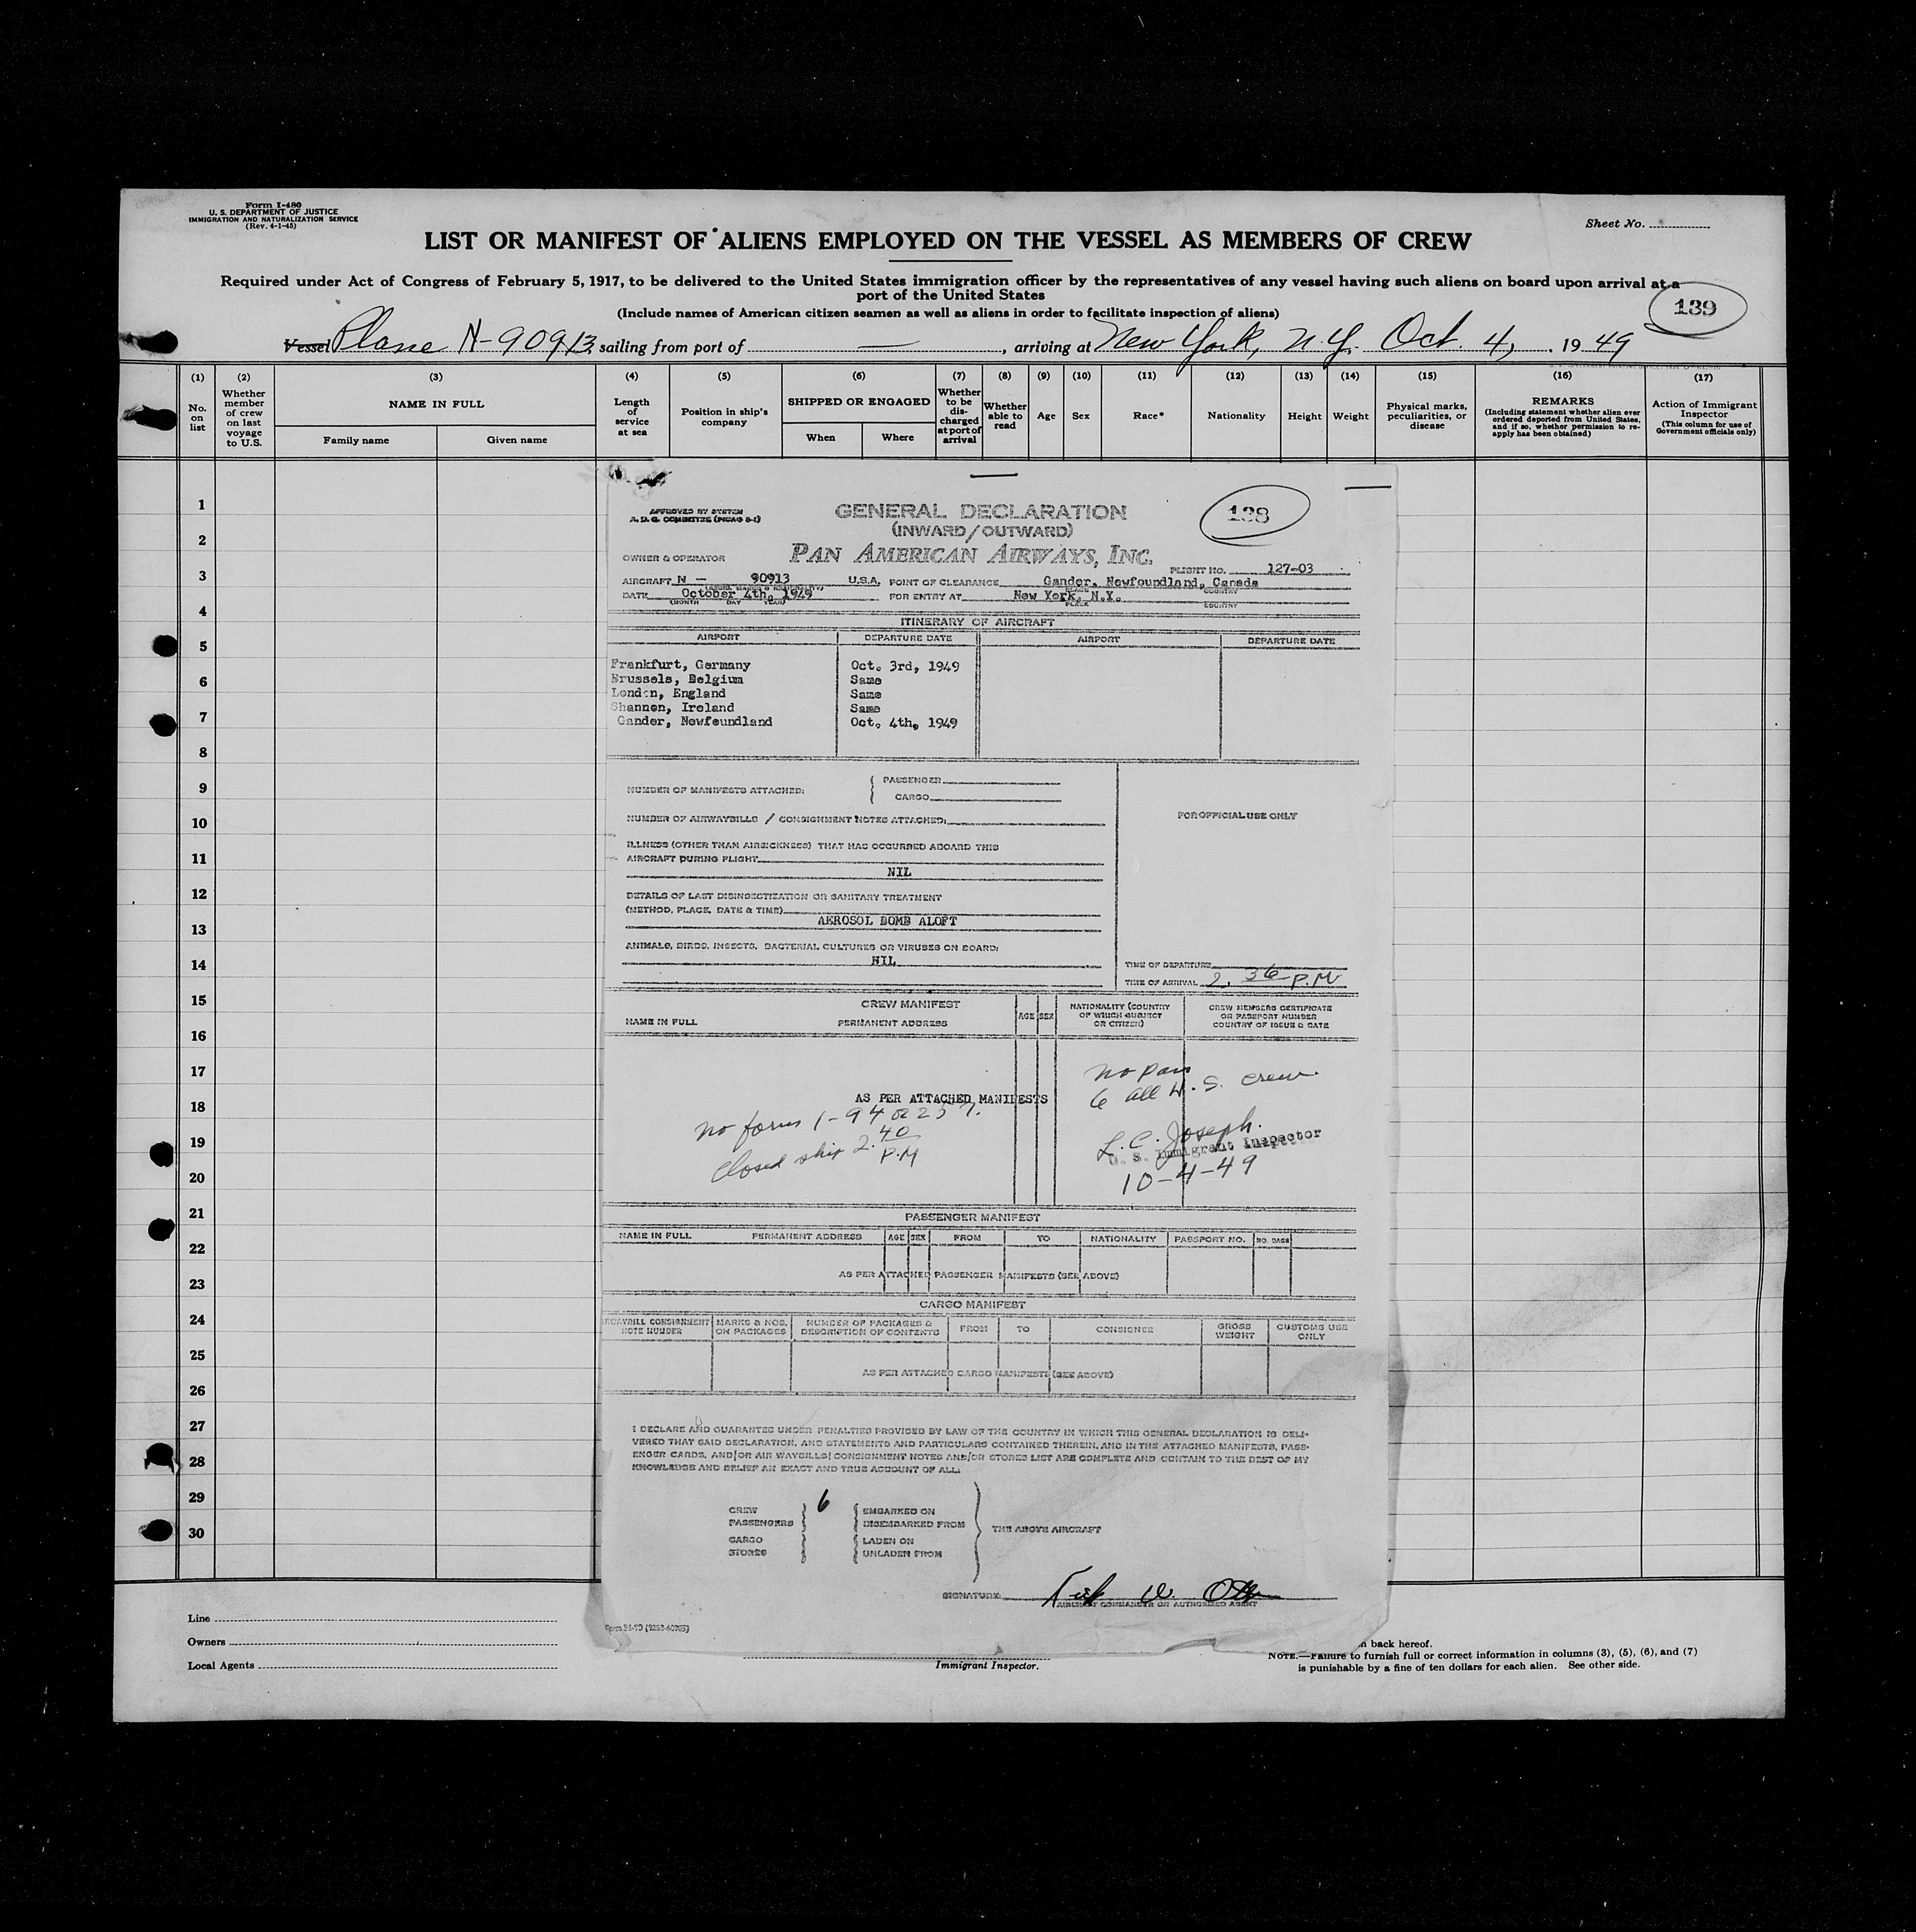 Form I-480
U. S. DEPARTMENT OF JUSTICE
IMMIGRATION AND NATURALIZATION SERVICE
(Rev. 4-1-45)
Sheet No.
LIST OR MANIFEST OF ALIENS EMPLOYED ON THE VESSEL AS MEMBERS OF CREW
Required under Act of Congress of February 5, 1917, to be delivered to the United States immigration officer by the representatives of any vessel having such aliens on board upon arrival at a
port of the United States
(Include names of American citizen seamen as well as aliens in order to facilitate inspection of aliens)
139
Vessel Plane N-90913 sailing from port of — , arriving at New York, N.Y. Oct. 4, 1949
(1) (2) (3) (4) (5) (6) (7) (8) (9) (10) (11) (12) (13) (14) (15) (16) (17)
No. on list
Whether member of crew on last voyage to U.S.
NAME IN FULL
Family name Given name
Length of service at sea
Position in ship's company
SHIPPED OR ENGAGED
When Where
Whether to be discharged at port of arrival
Whether able to read
Age
Sex
Race*
Nationality
Height
Weight
Physical marks, peculiarities, or disease
REMARKS
(Including statement whether alien ever ordered deported from United States, and if so, whether permission to reapply has been obtained)
Action of Immigrant Inspector
(This column for use of Government officials only)
1
2
3
4
5
6
7
8
9
10
11
12
13
14
15
16
17
18
19
20
21
22
23
24
25
26
27
28
29
30
APPROVED BY SYSTEM
A. D. G. COMMITTEE (PICAO 8-1)
GENERAL DECLARATION
(INWARD/OUTWARD)
138
OWNER & OPERATOR PAN AMERICAN AIRWAYS, INC.
FLIGHT NO. 127-03
AIRCRAFT N - 90913 U.S.A. POINT OF CLEARANCE Gander, Newfoundland, Canada
DATE October 4th, 1949 FOR ENTRY AT New York, N.Y.
(MONTH DAY YEAR) PLACE COUNTRY
ITINERARY OF AIRCRAFT
AIRPORT DEPARTURE DATE AIRPORT DEPARTURE DATE
Frankfurt, Germany Oct. 3rd, 1949
Brussels, Belgium Same
London, England Same
Shannon, Ireland Same
Gander, Newfoundland Oct. 4th, 1949
NUMBER OF MANIFESTS ATTACHED: PASSENGER
CARGO
FOR OFFICIAL USE ONLY
NUMBER OF AIRWAYBILLS / CONSIGNMENT NOTES ATTACHED:
ILLNESS (OTHER THAN AIRSICKNESS) THAT HAS OCCURRED ABOARD THIS
AIRCRAFT DURING FLIGHT
NIL
DETAILS OF LAST DISINSECTIZATION OR SANITARY TREATMENT
(METHOD, PLACE, DATE & TIME)
AEROSOL BOMB ALOFT
ANIMALS, BIRDS, INSECTS, BACTERIAL CULTURES OR VIRUSES ON BOARD:
NIL
TIME OF DEPARTURE
TIME OF ARRIVAL 2.36 P.M
CREW MANIFEST
NAME IN FULL PERMANENT ADDRESS AGE SEX
NATIONALITY (COUNTRY OF WHICH SUBJECT OR CITIZEN)
CREW MEMBERS CERTIFICATE OR PASSPORT NUMBER COUNTRY OF ISSUE & DATE
no pass
6 all U.S. crew
AS PER ATTACHED MANIFESTS
no form 1-94 or 257.
closed ship 2.40 P.M
L. C. Joseph.
U. S. Immigrant Inspector
10-4-49
PASSENGER MANIFEST
NAME IN FULL PERMANENT ADDRESS AGE SEX FROM TO NATIONALITY PASSPORT NO. NO. BAGS
AS PER ATTACHED PASSENGER MANIFESTS (SEE ABOVE)
CARGO MANIFEST
AIRWAYBILL CONSIGNMENT NOTE NUMBER
MARKS & NOS. ON PACKAGES
NUMBER OF PACKAGES & DESCRIPTION OF CONTENTS
FROM TO CONSIGNEE
GROSS WEIGHT
CUSTOMS USE ONLY
AS PER ATTACHED CARGO MANIFESTS (SEE ABOVE)
I DECLARE AND GUARANTEE UNDER PENALTIES PROVIDED BY LAW OF THE COUNTRY IN WHICH THIS GENERAL DECLARATION IS DELI-
VERED THAT SAID DECLARATION, AND STATEMENTS AND PARTICULARS CONTAINED THEREIN, AND IN THE ATTACHED MANIFESTS, PASS-
ENGER CARDS, AND/OR AIR WAYBILLS/CONSIGNMENT NOTES AND/OR STORES LIST ARE COMPLETE AND CONTAIN TO THE BEST OF MY
KNOWLEDGE AND BELIEF AN EXACT AND TRUE ACCOUNT OF ALL:
CREW 6 EMBARKED ON
PASSENGERS DISEMBARKED FROM
THE ABOVE AIRCRAFT
CARGO LADEN ON
STORES UNLADEN FROM
SIGNATURE
AIRCRAFT COMMANDER OR AUTHORIZED AGENT
Line
Owners
Local Agents
Immigrant Inspector.
n back hereof.
NOTE.—Failure to furnish full or correct information in columns (3), (5), (6), and (7)
is punishable by a fine of ten dollars for each alien. See other side.